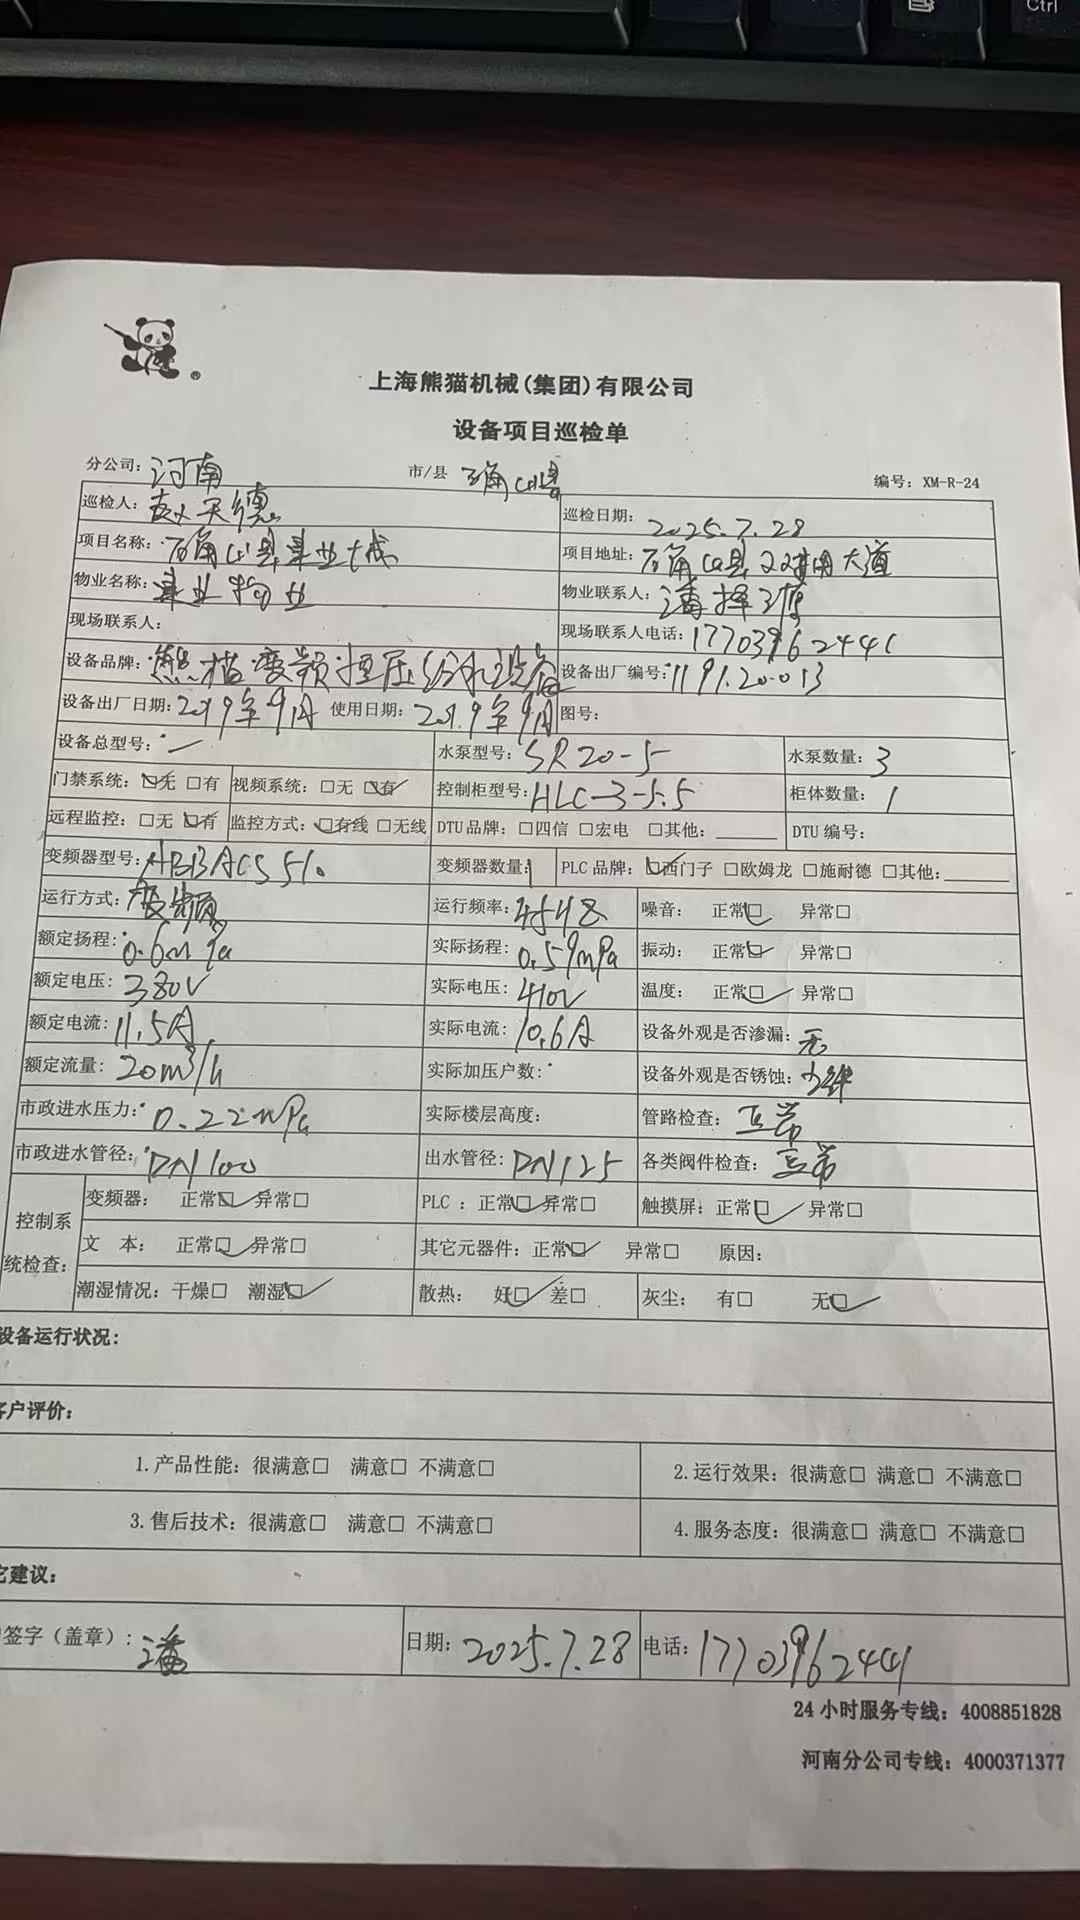 Ctrl
上海熊猫机械(集团)有限公司
设备项目巡检单
分公司: 河南 市/县 确山县 编号: XM-R-24
巡检人: 赵天德 巡检日期: 2025.7.28
项目名称: 确山县 业城 项目地址: 确山县 大道
物业名称: 业物业 物业联系人: 潘
现场联系人: 现场联系人电话: 17703962441
设备品牌: 熊猫变频恒压给水设备 设备出厂编号: 1191.20.013
设备出厂日期: 2019年9月 使用日期: 2019年9月 图号:
设备总型号: — 水泵型号: SR20-5 水泵数量: 3
门禁系统: ☑无 □有 视频系统: □无 ☑有 控制柜型号: HLC-3-5.5 柜体数量: 1
远程监控: □无 ☑有 监控方式: ☑有线 □无线 DTU品牌: □四信 □宏电 □其他: DTU编号:
变频器型号: ABBACS510 变频器数量: 1 PLC品牌: ☑西门子 □欧姆龙 □施耐德 □其他:
运行方式: 变频 运行频率: 45HZ 噪音: 正常☑ 异常□
额定扬程: 0.6mPa 实际扬程: 0.59mPa 振动: 正常☑ 异常□
额定电压: 380V 实际电压: 410V 温度: 正常☑ 异常□
额定电流: 11.5A 实际电流: 10.6A 设备外观是否渗漏: 无
额定流量: 20m³/h 实际加压户数: 设备外观是否锈蚀: 少锈
市政进水压力: 0.22mPa 实际楼层高度: 管路检查: 正常
市政进水管径: DN100 出水管径: DN125 各类阀件检查: 正常
控制系统检查: 变频器: 正常☑ 异常□ PLC: 正常☑ 异常□ 触摸屏: 正常☑ 异常□
文 本: 正常☑ 异常□ 其它元器件: 正常☑ 异常□ 原因:
潮湿情况: 干燥□ 潮湿☑ 散热: 好☑ 差□ 灰尘: 有□ 无☑
设备运行状况:
客户评价:
1.产品性能: 很满意□ 满意□ 不满意□ 2.运行效果: 很满意□ 满意□ 不满意□
3.售后技术: 很满意□ 满意□ 不满意□ 4.服务态度: 很满意□ 满意□ 不满意□
它建议:
签字(盖章): 潘 日期: 2025.7.28 电话: 17703962441
24小时服务专线: 4008851828
河南分公司专线: 4000371377